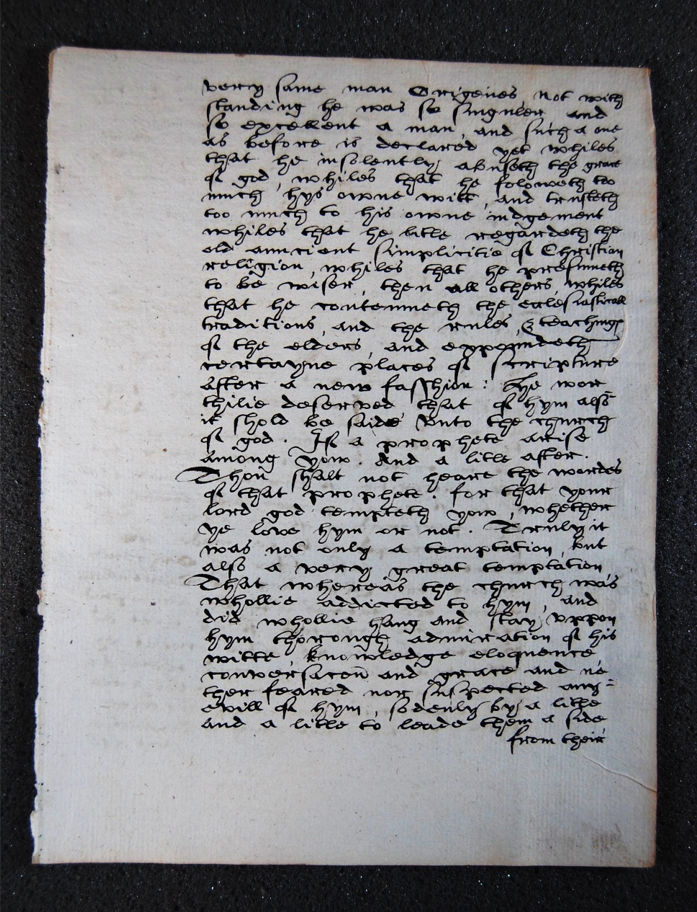 very same man Origenes not with
standing he was so singuler and
so excellent a man, and such a one
as before is declared yet whiles
that he insolently abuseth the grace
of god, whiles that he foloweth too
much hys owne witt, and trusteth
too much to his owne iudgement
whiles that he litle regardeth the
old auncient simplicitie of Christian
religion, whiles that he presumeth
to be wiser, then all others, whiles
that he contemneth the ecclesiasticall
traditions, and the rules, & teachings
of the elders, and expoundeth
certayne places of scripture
after a new fasshion: Hye wor
thilie deserved that of hym also
it shold be saide vnto the church
of god. If a prophete arise
among yow. And a litle after.
Thou shalt not heare the wordes
of that prophete. for that your
lord god tempteth yow, whether
ye love hym or not. Truly it
was not only a temptation, but
also a very great temptation
That whereas the church was
whollie addicted to hym, and
did whollie hang and stay vppon
hym thorough admiration of his
witte, knowledge eloquence
conversacon and grace and ne
ther feared nor suspected any=
evill of hym, sodenly by a litle
and a litle to leade them a side
from their